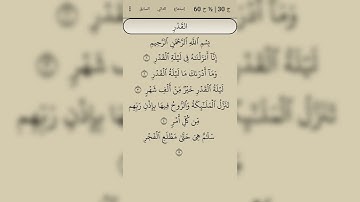 ج 30 | ½ ح 60
إستماع
التالي
السابق
القدر
بِسْمِ ٱللَّهِ ٱلرَّحْمَٰنِ ٱلرَّحِيمِ
إِنَّآ أَنزَلْنَٰهُ فِى لَيْلَةِ ٱلْقَدْرِ ۝١
وَمَآ أَدْرَىٰكَ مَا لَيْلَةُ ٱلْقَدْرِ ۝٢
لَيْلَةُ ٱلْقَدْرِ خَيْرٌ مِّنْ أَلْفِ شَهْرٍ ۝٣
تَنَزَّلُ ٱلْمَلَٰٓئِكَةُ وَٱلرُّوحُ فِيهَا بِإِذْنِ رَبِّهِم
مِّن كُلِّ أَمْرٍ ۝٤
سَلَٰمٌ هِىَ حَتَّىٰ مَطْلَعِ ٱلْفَجْرِ
۝٥